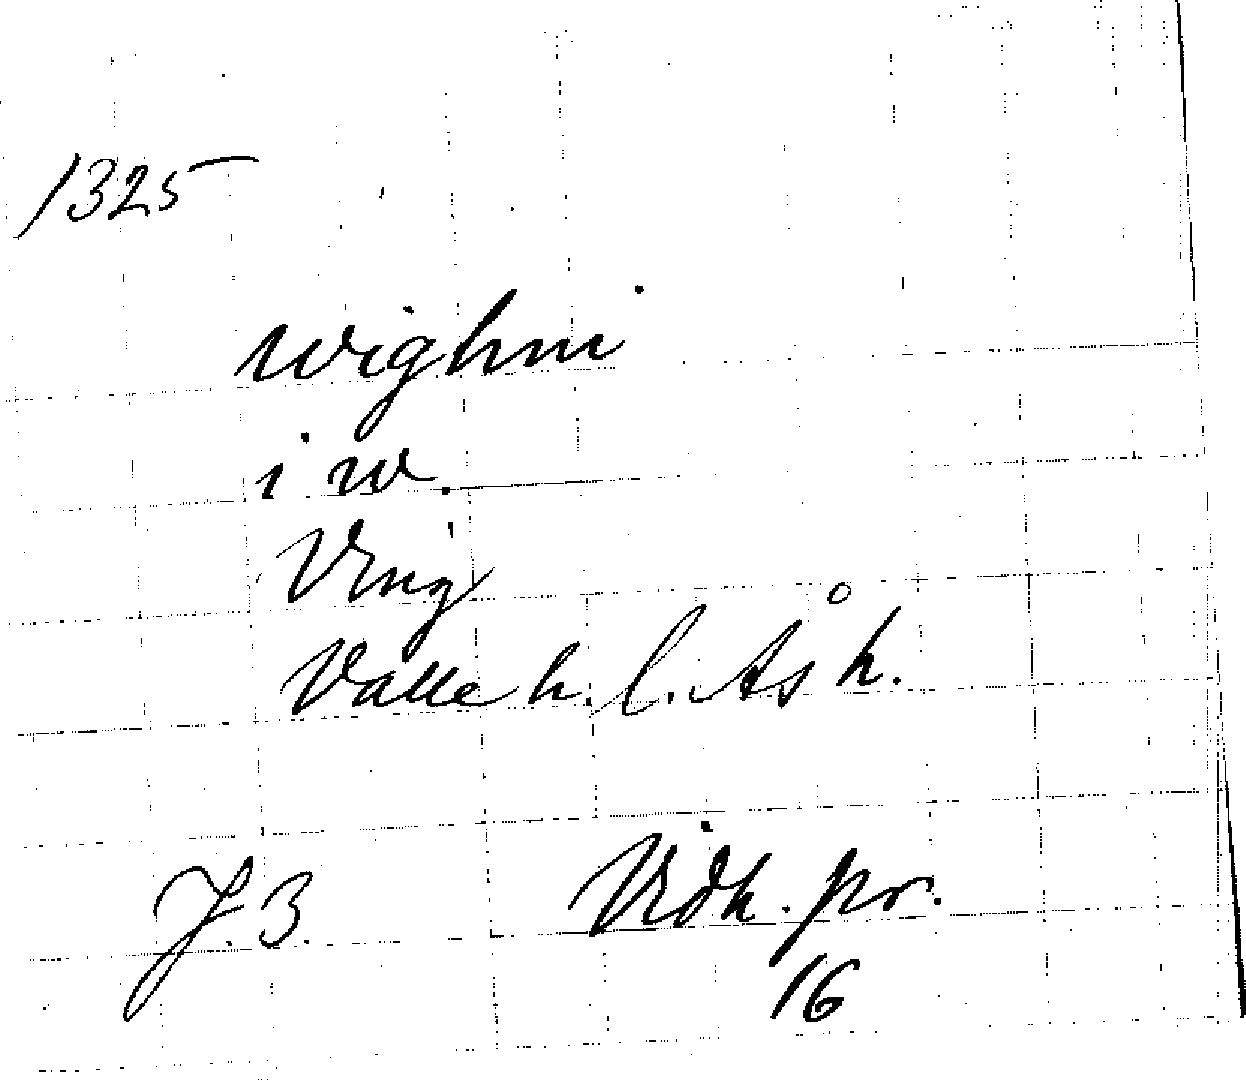 1325
wighni
i w.
Ving
Valle h. l. Ås h.
J. 3.
Vidh. pr.
16